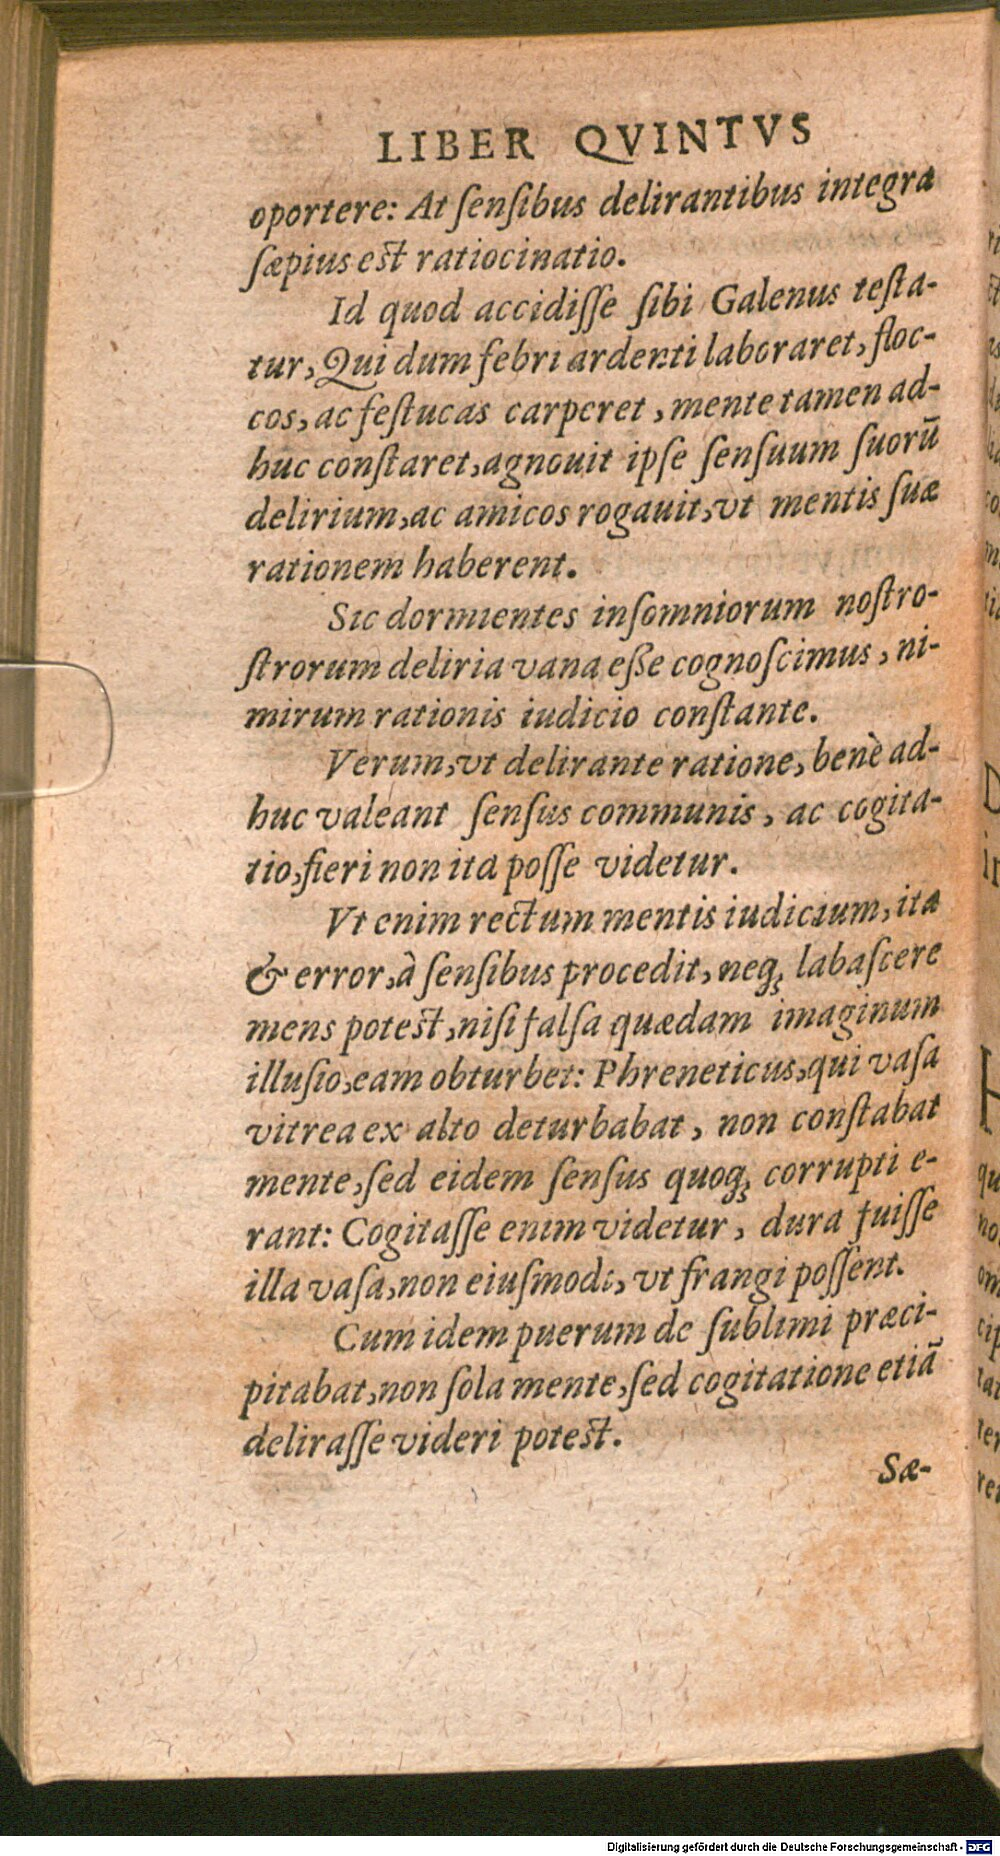 LIBER QVINTVS
oportere: At ſenſibus delirantibus integra
ſæpius est ratiocinatio.
Id quod accidiſſe ſibi Galenus teſta-
tur, Qui dum febri ardenti laboraret, floc-
cos, ac feſtucas carperet, mente tamen ad-
huc conſtaret, agnouit ipſe ſenſuum ſuorū
delirium, ac amicos rogauit, vt mentis ſuæ
rationem haberent.
Sic dormientes inſomniorum noſtro-
ſtrorum deliria vana eße cognoſcimus, ni-
mirum rationis iudicio conſtante.
Verum, vt delirante ratione, benè ad-
huc valeant ſenſus communis, ac cogita-
tio, fieri non ita poſſe videtur.
Vt enim rectum mentis iudicium, ita
& error, à ſenſibus procedit, neq; labaſcere
mens potest, niſi falſa quædam imaginum
illuſio, eam obturbet: Phreneticus, qui vaſa
vitrea ex alto deturbabat, non conſtabat
mente, ſed eidem ſenſus quoq; corrupti e-
rant: Cogitaſſe enim videtur, dura fuiſſe
illa vaſa, non eiuſmodi, vt frangi poſſent.
Cum idem puerum de ſublimi præci-
pitabat, non ſola mente, ſed cogitatione etiā
deliraſſe videri potest.
Sæ-
Digitalisierung gefördert durch die Deutsche Forschungsgemeinschaft - DFG